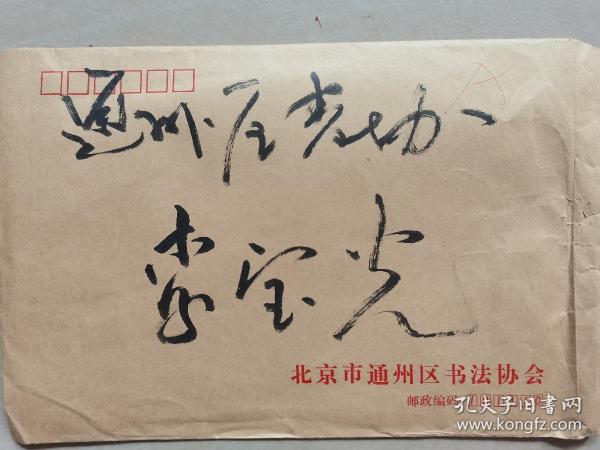 通州区书协
李宝光
北京市通州区书法协会
邮政编码
孔夫子旧书网
www.kongfz.com